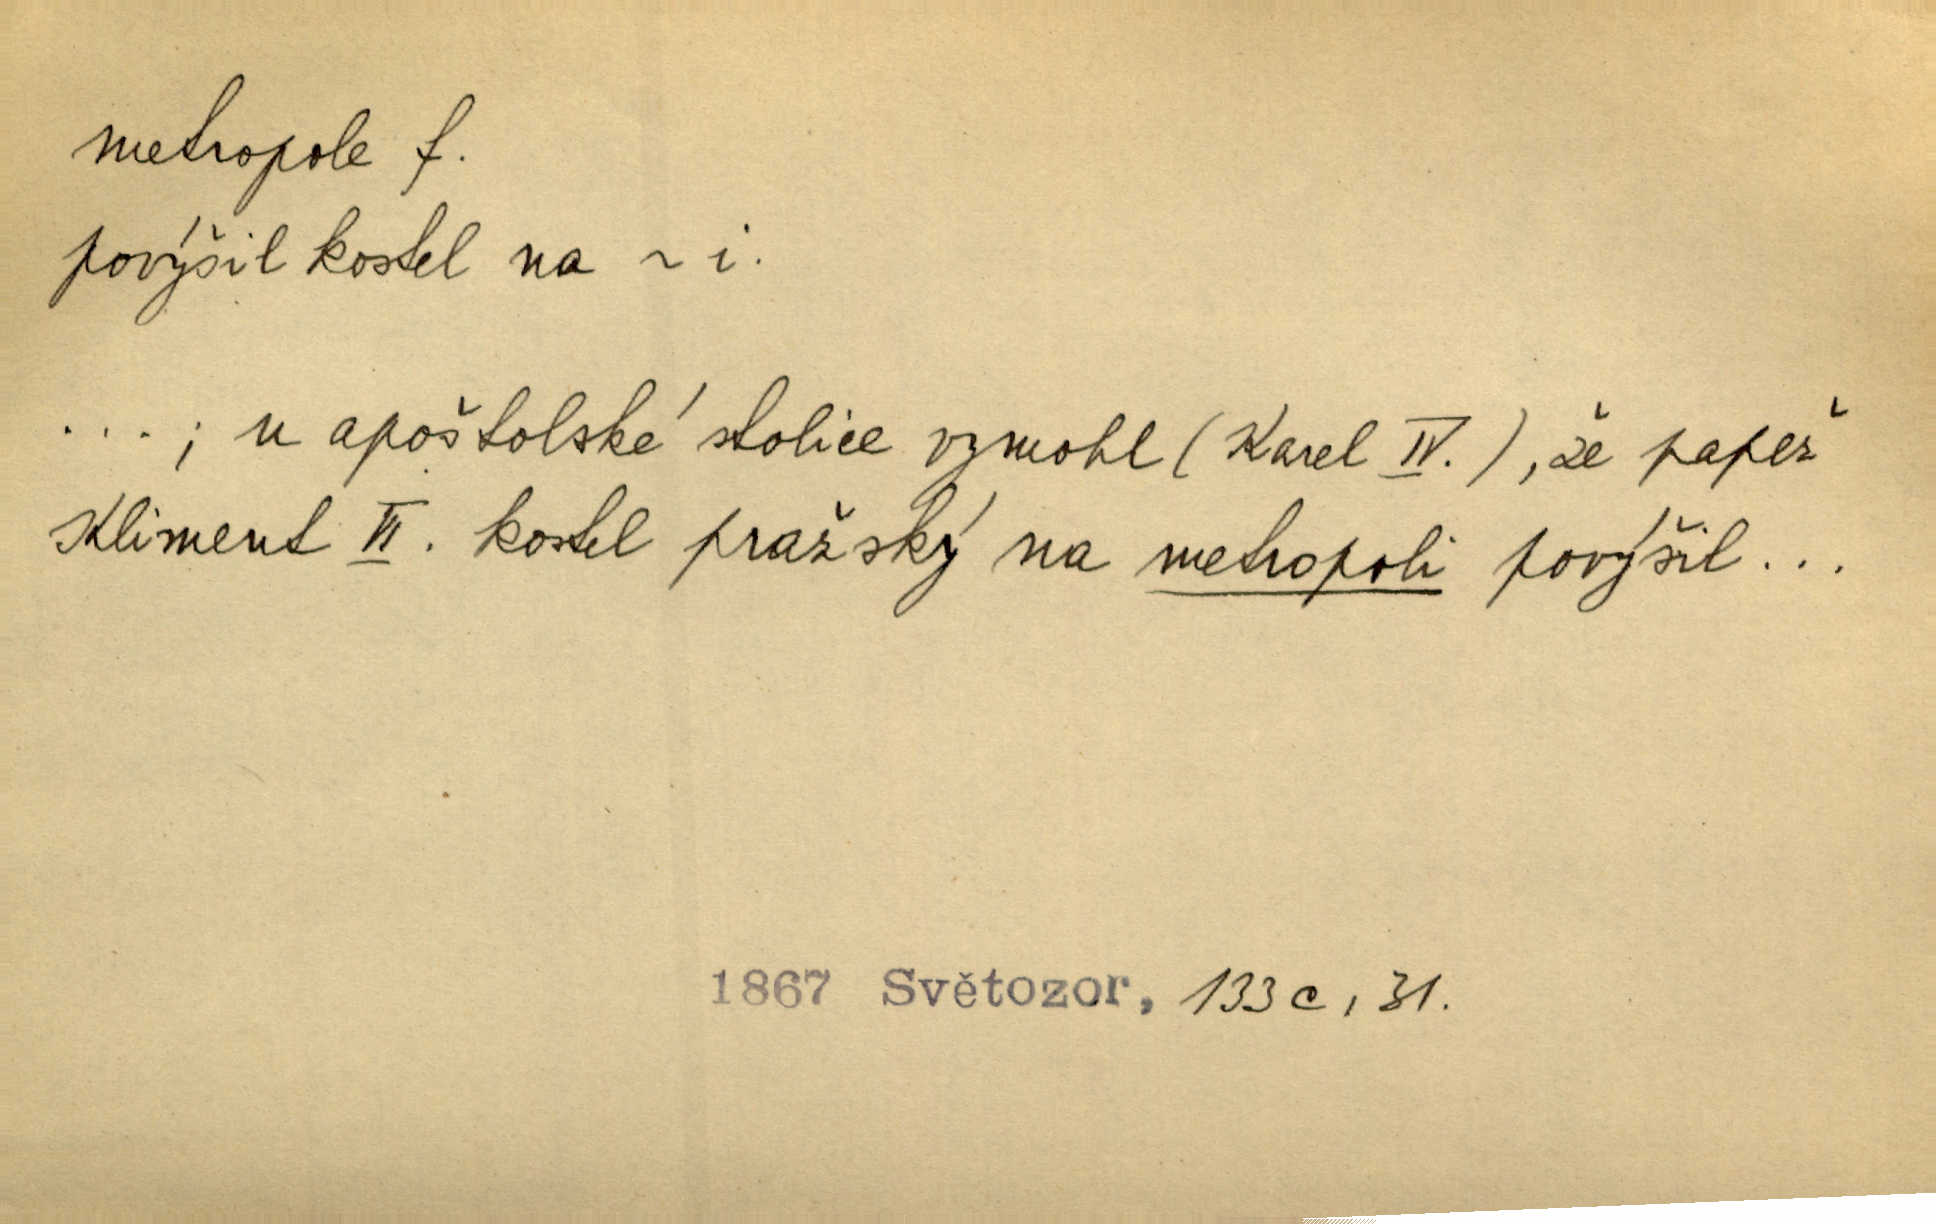 metropole f.
povýšil kostel na ~ i.
...; u apoštolské stolice vymohl (Karel IV.), že papež
Kliment VI. kostel pražský na metropoli povýšil...
1867 Světozor, 133 c, 31.